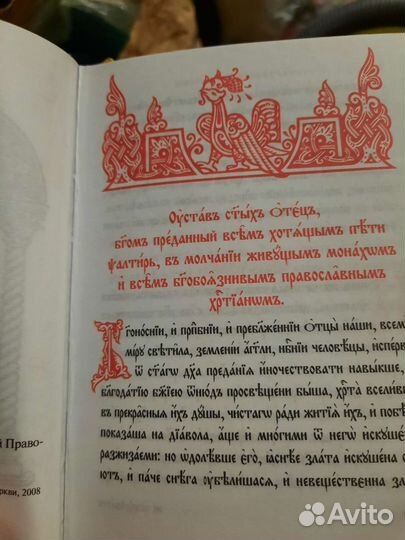 Оуста́въ ст҃ы́хъ ѻ҆те́цъ,
бг҃омъ пре́данный всѣ̑мъ хотѧ́щымъ пѣ́ти
ѱалти́рь, въ молча́нїи живꙋ́щымъ мона́хѡмъ
и҆ всѣ̑мъ бг҃обоѧзни̑вымъ правосла̑внымъ
хрⷭ҇тїа́нѡмъ.
Бг҃оно́снїи, и҆ прпⷣбнїи, и҆ пребл҃же́ннїи ѻ҆тцы̀ на́ши, всемꙋ̀
мі́рꙋ свѣти̑ла, земні́и а҆́гг҃ли, нбⷭ҇нїи человѣ́цы, и҆спе́рва
ѿ ст҃а́гѡ дх҃а преда́нїѧ и҆но́чествовати навы́кше,
бл҃года́тїю бж҃їею ѿню́дъ просвѣще́ни бы́ша, хрⷭ҇та̀ всели́в
въ прекра̑сныѧ и҆́хъ дꙋ́шы, чи́стагѡ ра́ди житїѧ̀ и҆́хъ, и҆ побѣ
показа́ша на дїа́вола, а҆́ще и҆ мно́гими ѿ негѡ̀ и҆скꙋше́
разжиза́еми: но ѡ҆долѣ́вше є҆го̀, ꙗ҆́снѣе зла́та и҆скꙋше́на с
ю́тъ, и҆ па́че снѣ́га ᲂу҆бѣли́шасѧ, и҆ невеще́ствєнна зл
й Право-
ркви, 2008
Avito